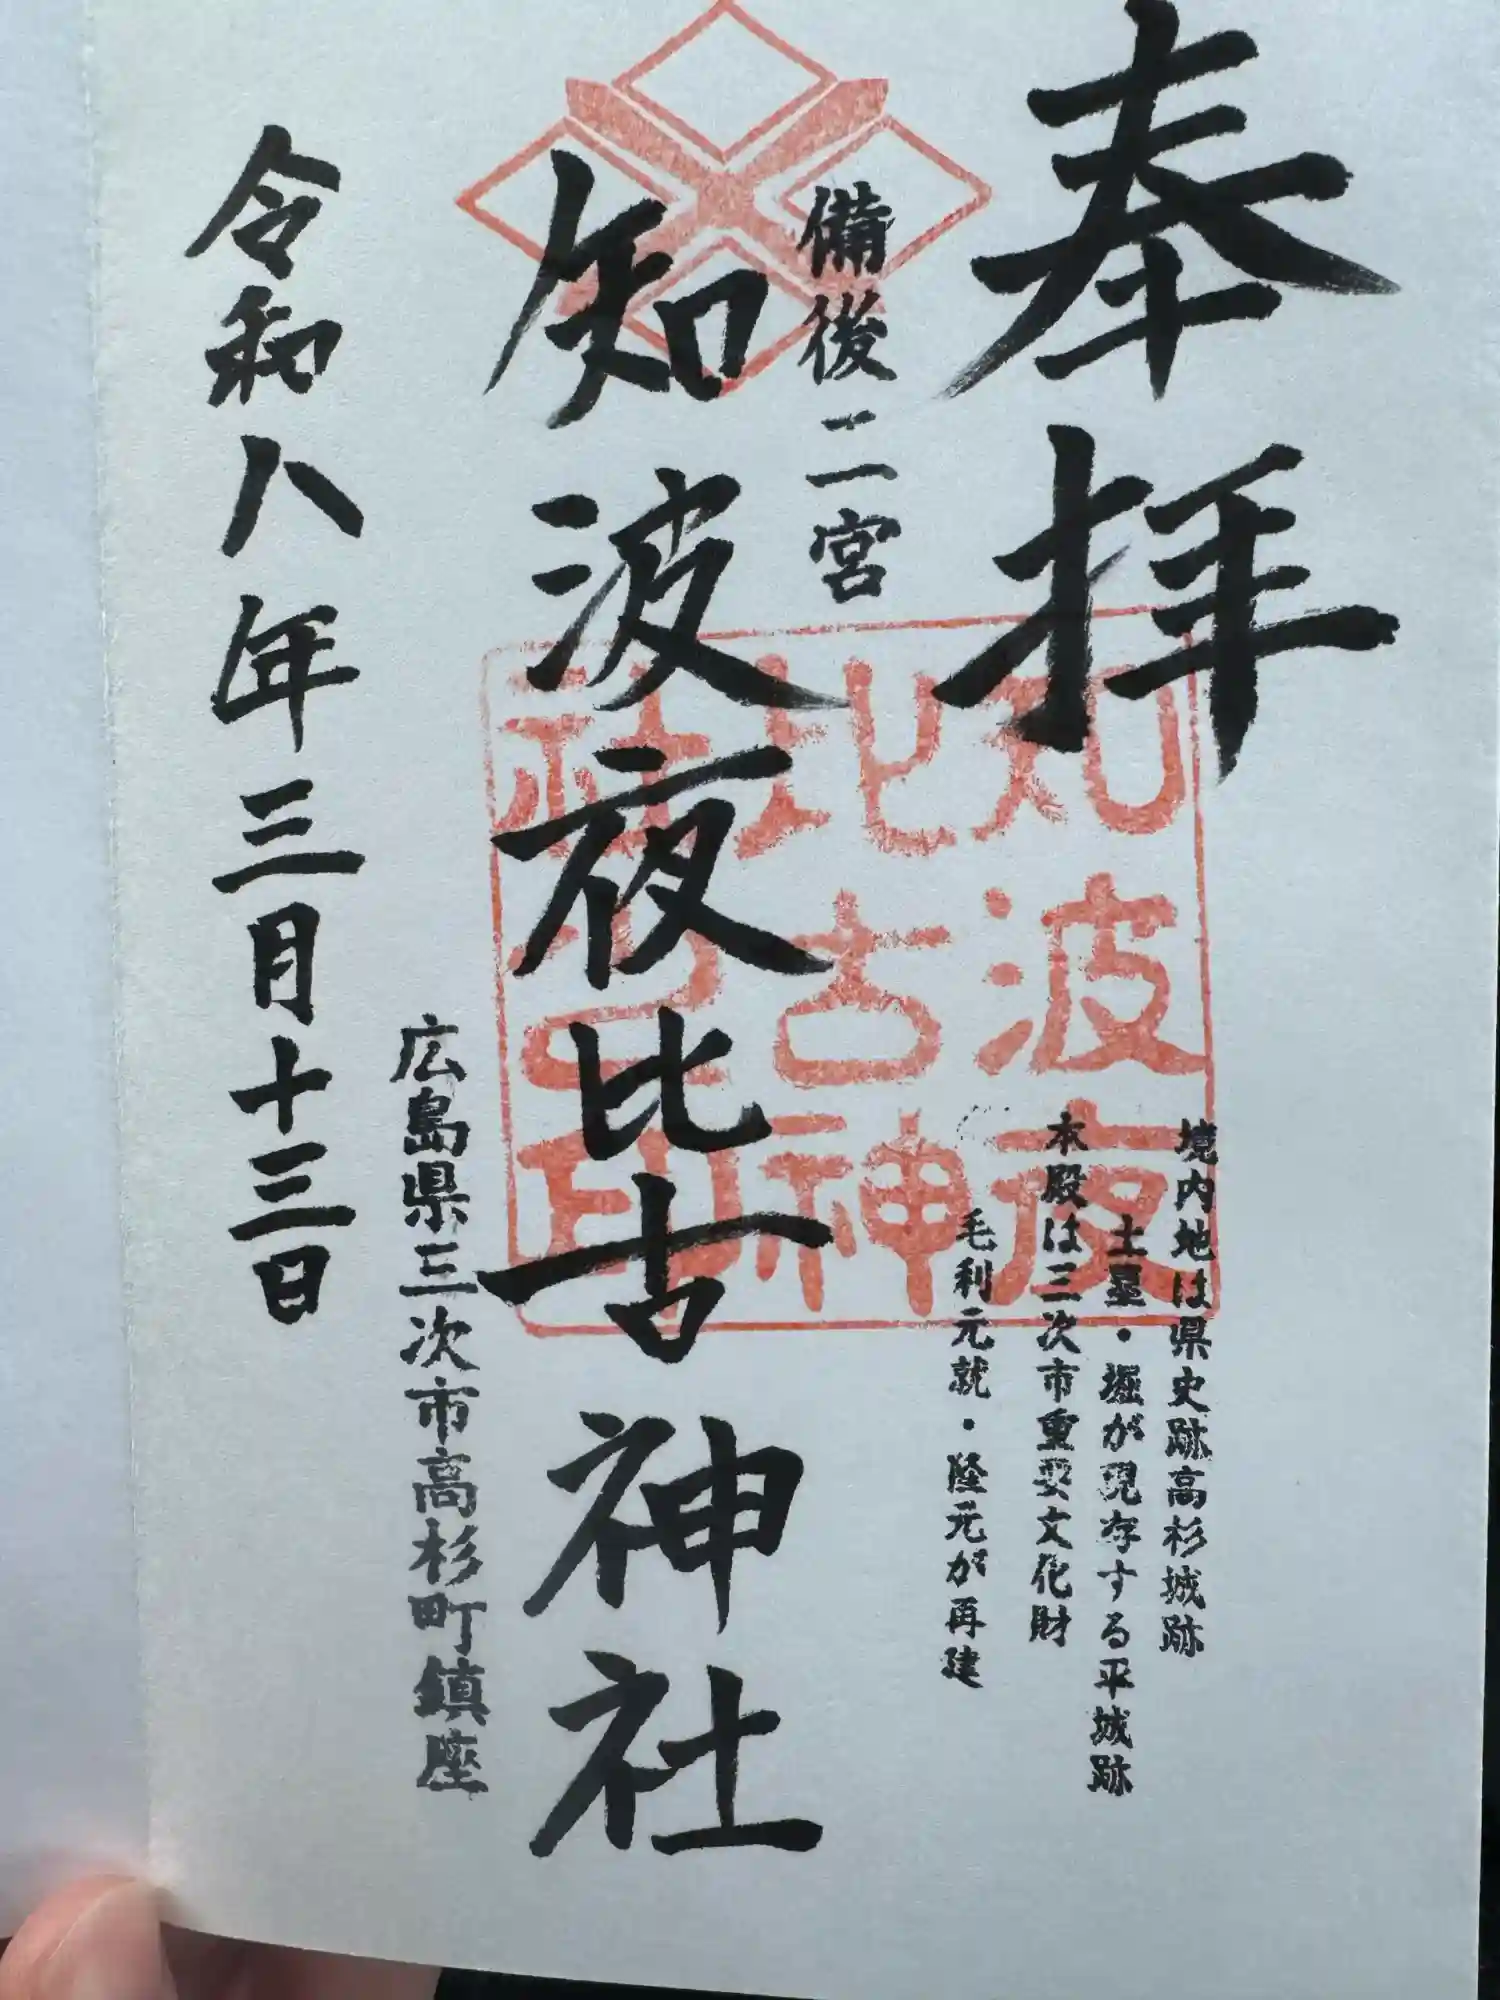 奉拝
境内地は県史跡高杉城跡
土塁・堀が現存する平城跡
本殿は三次市重要文化財
毛利元就・隆元が再建
備後二宮
知波夜比古神社
知波夜
比古神
社之印
広島県三次市高杉町鎮座
令和八年三月十三日